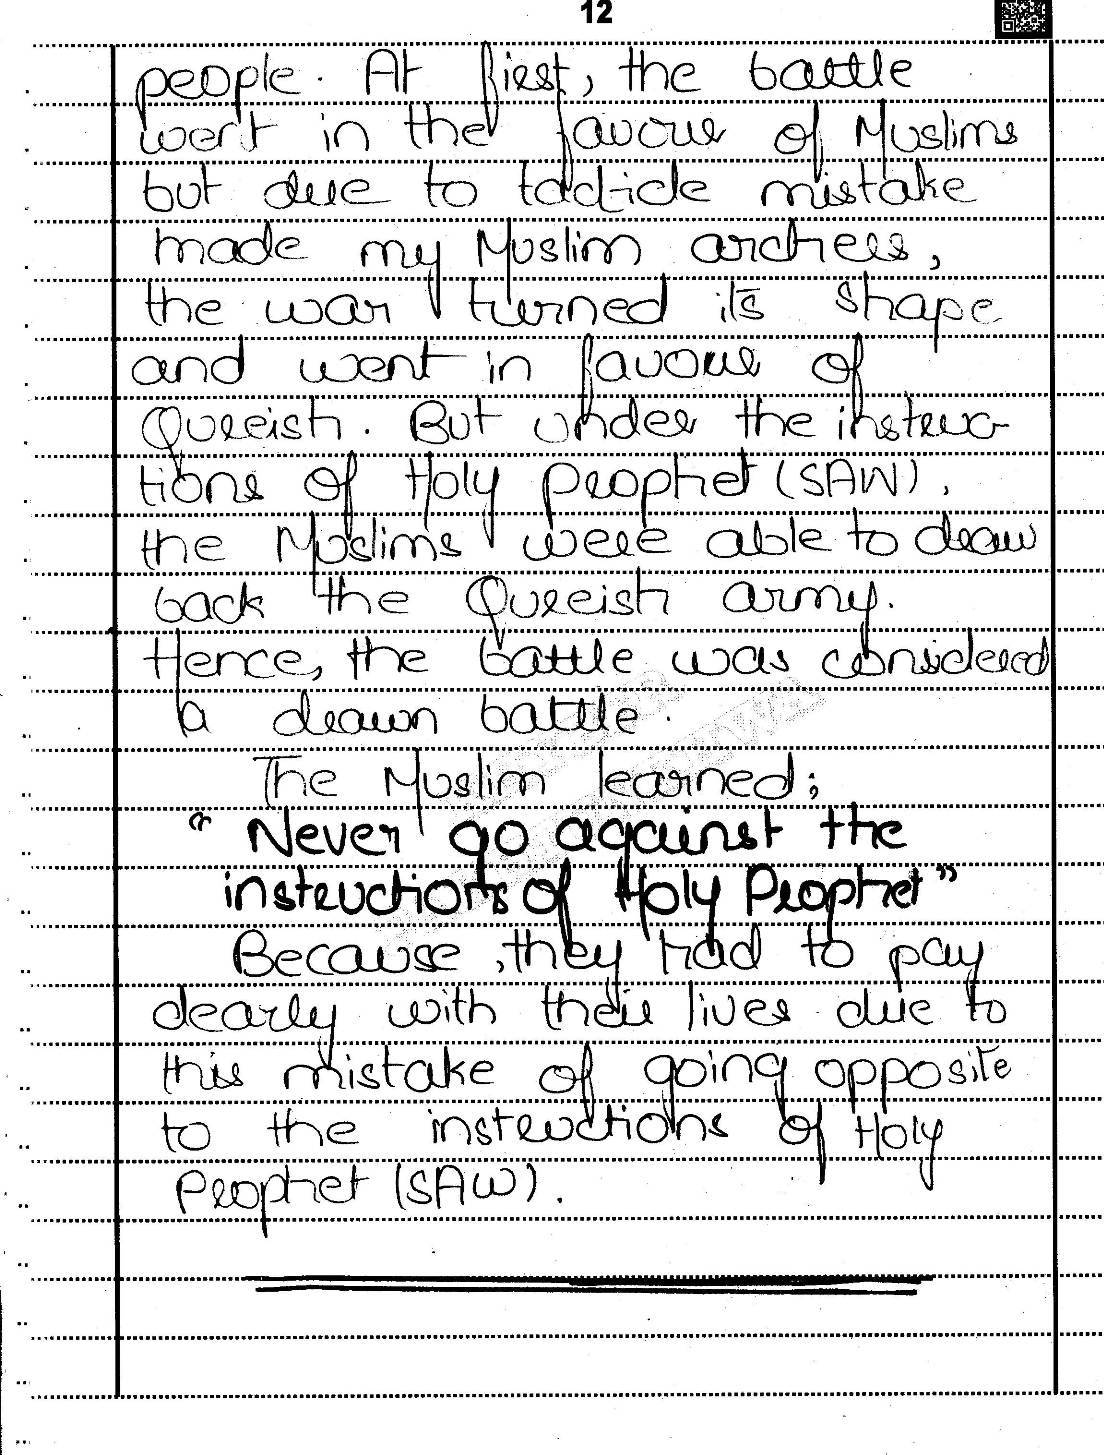 12
people. At first, the battle
went in the favour of Muslims
but due to tacticle mistake
made my Muslim archers,
the war turned its shape
and went in favour of
Qureish. But under the instruc-
tions of Holy Prophet (SAW),
the Muslims were able to draw
back the Qureish army.
Hence, the battle was considered
a drawn battle.
The Muslim learned;
"Never go against the
instructions of Holy Prophet"
Because, they had to pay
dearly with their lives due to
this mistake of going opposite
to the instructions of Holy
Prophet (SAW).